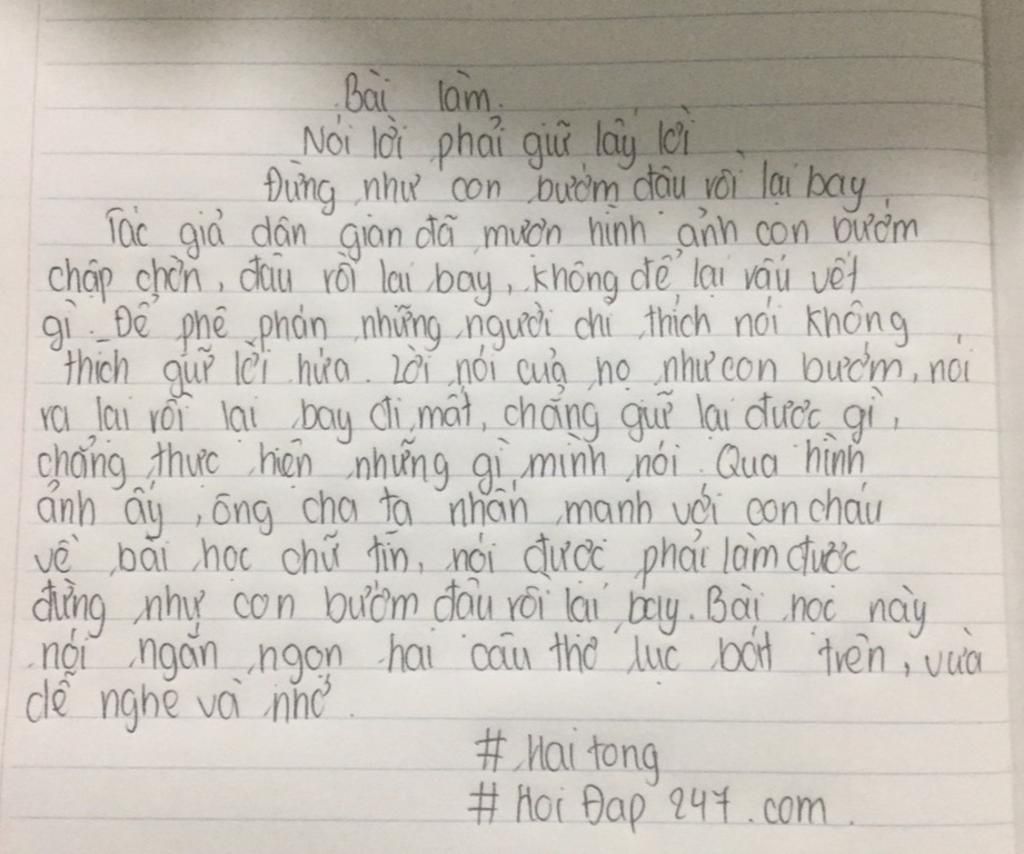 Bài làm.
Nói lời phải giữ lấy lời
Đừng như con bướm đậu rồi lại bay
Tác giả dân gian đã mượn hình ảnh con bướm
chập chờn, đậu rồi lại bay, không để lại vấu vết
gì. Để phê phán những người chỉ thích nói không
thích giữ lời hứa. Lời nói của họ như con bướm, nói
ra lại rồi lại bay đi mất, chẳng giữ lại được gì,
chẳng thực hiện những gì mình nói. Qua hình
ảnh ấy, ông cha ta nhấn mạnh với con cháu
về bài học chữ tín, nói được phải làm được
đừng như con bướm đậu rồi lại bay. Bài học này
nói ngắn ngọn hai câu thơ lục bát trên, vừa
dễ nghe và nhớ.
# Hai tong
# Hoi Đap 247.com.